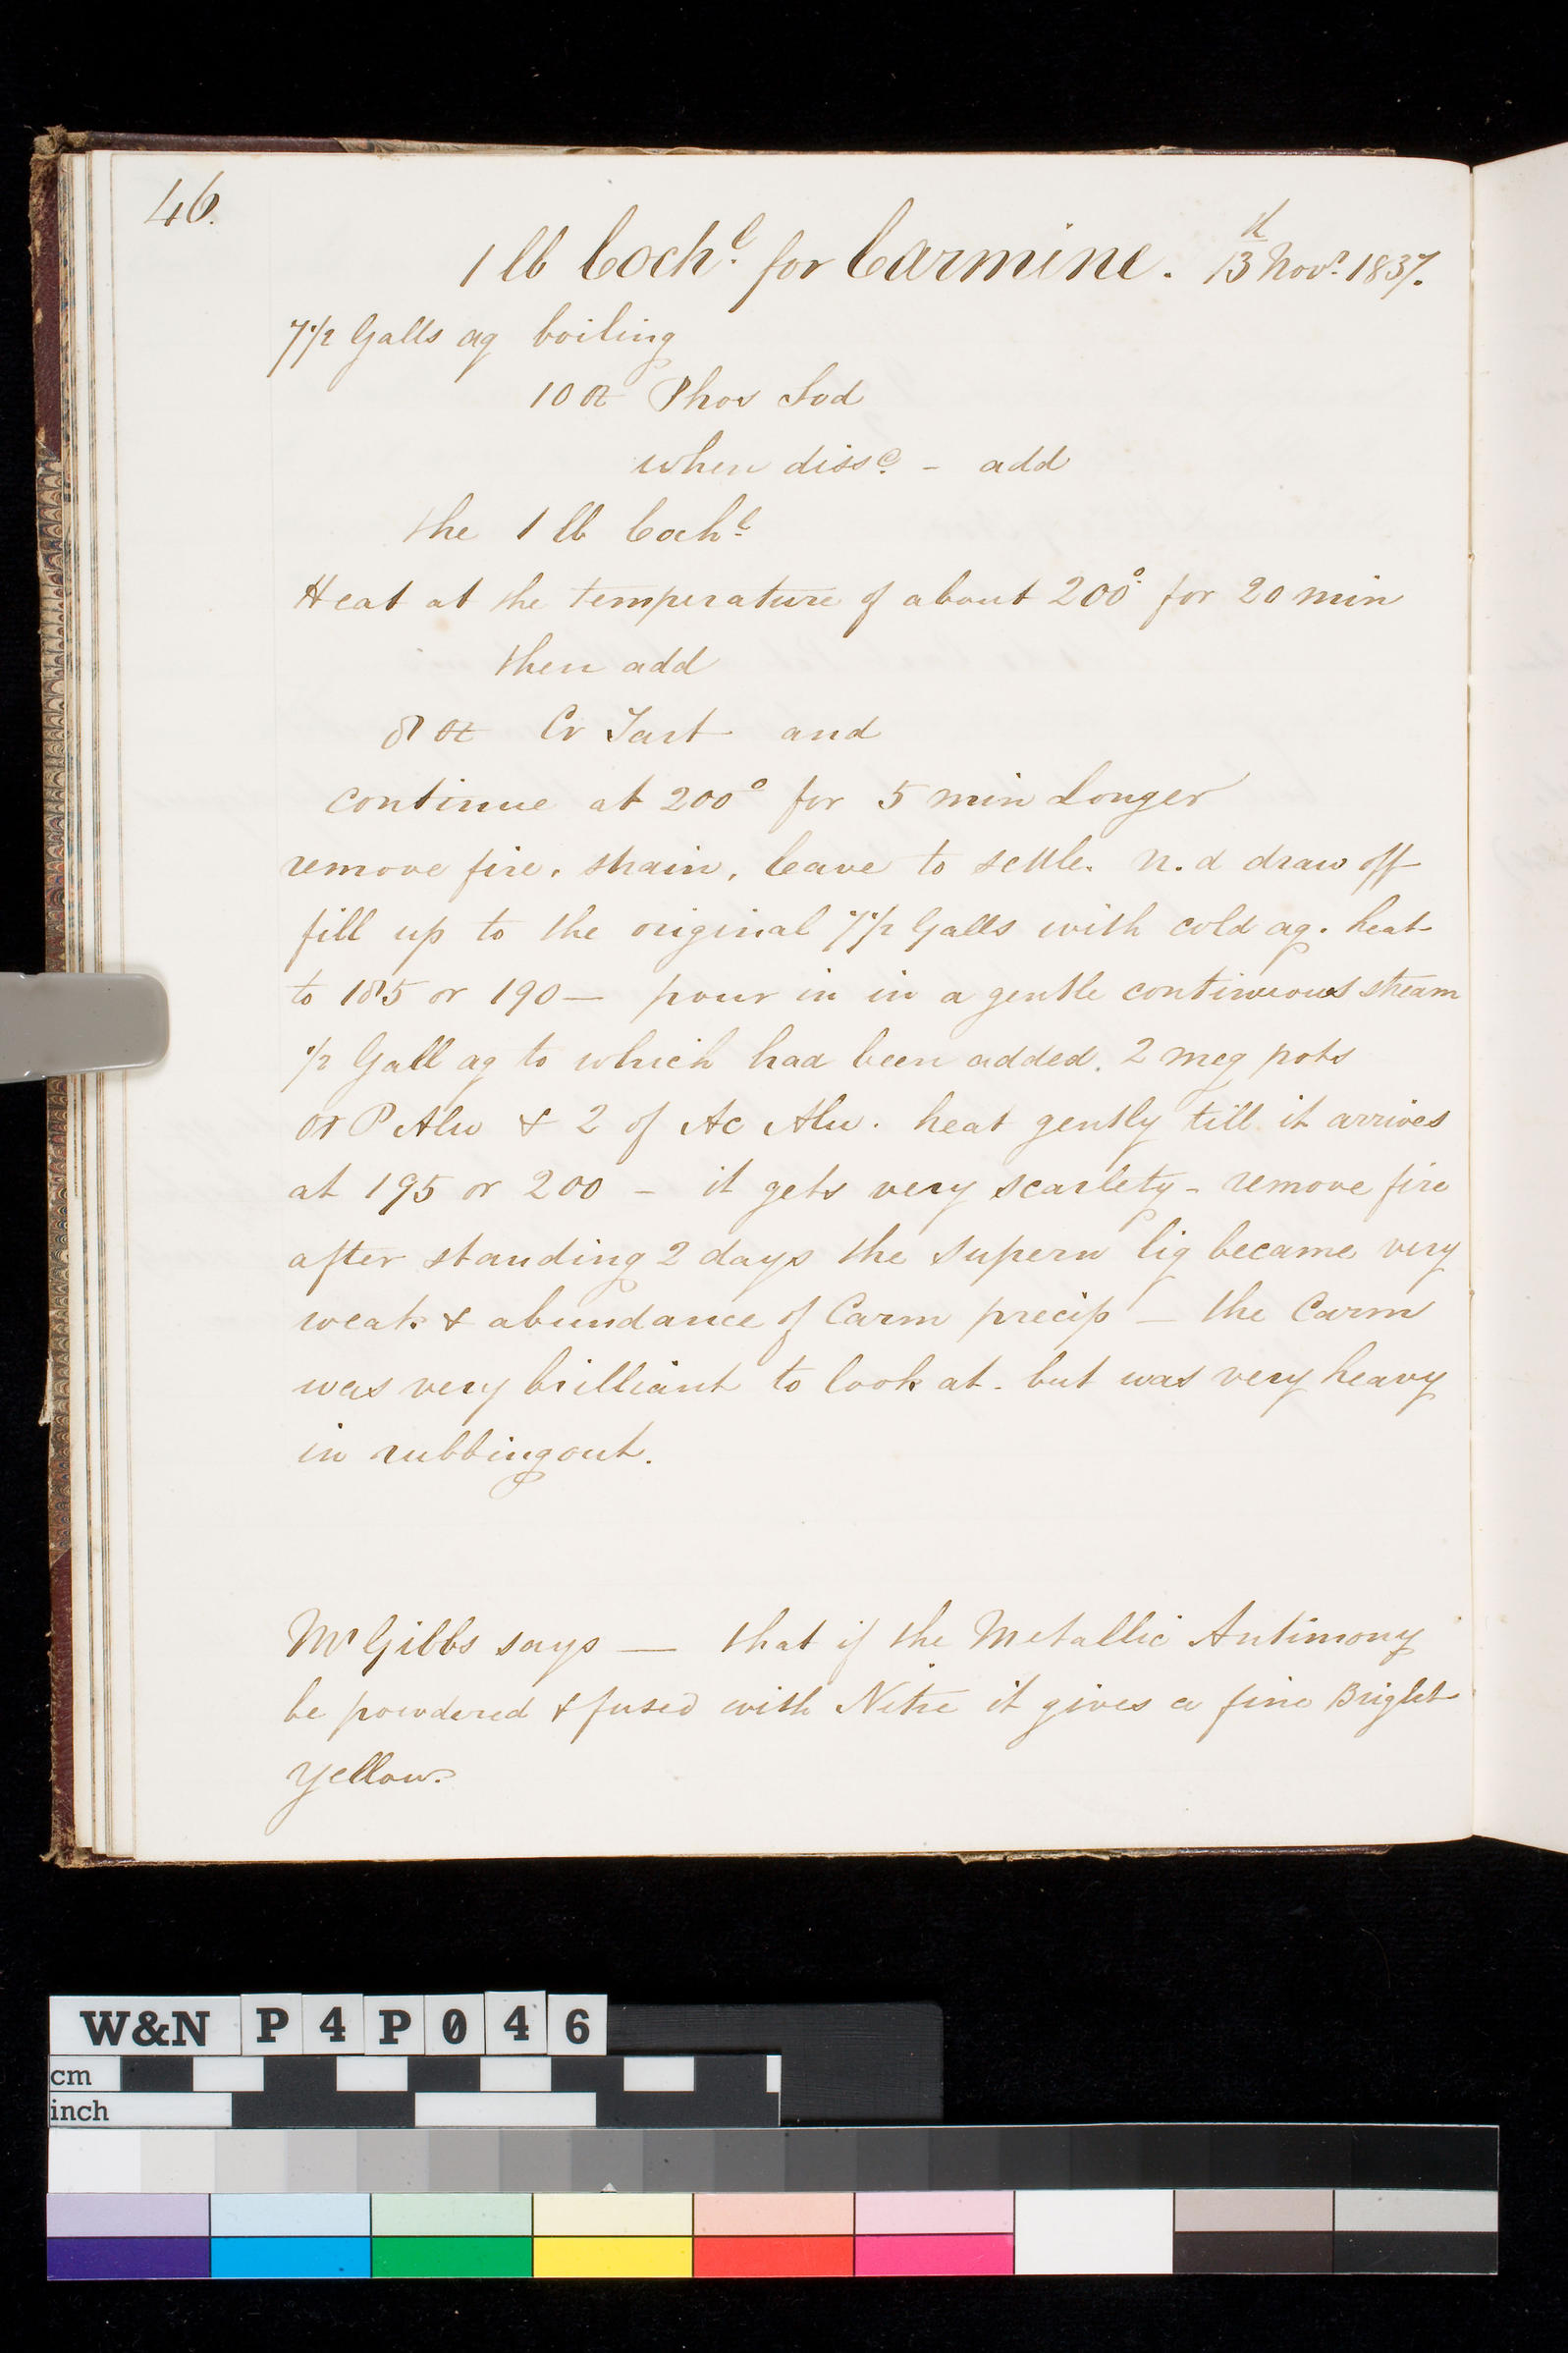 46.
1 lb Cochl for Carmine. 13 Novr 1837.
7 1/2 Galls aq boiling
10 oz Phos Sod
when disse - add
the 1 lb Cochl
Heat at the temperature of about 200° for 20 min
then add
8 oz Cr Tart and
continue at 200° for 5 min Longer
remove fire, strain, leave to settle. n.d draw off
fill up to the original 7 1/2 Galls with cold aq. heat
to 185 or 190 — pour in in a gentle continuous stream
1/2 Gall aq to which had been added. 2 meg pots
or P Alu & 2 of Ac Alu. heat gently till it arrives
at 195 or 200 - it gets very scarlety - remove fire
after standing 2 days the supern liq became very
weak & abundance of Carm precip — the Carm
was very brilliant to look at. but was very heavy
in rubbing out.
Mr Gibbs says — that if the Metallic Antimony
be powdered & fused with Nitre it gives a fine Bright
yellow.
W&N P4P046
cm
inch